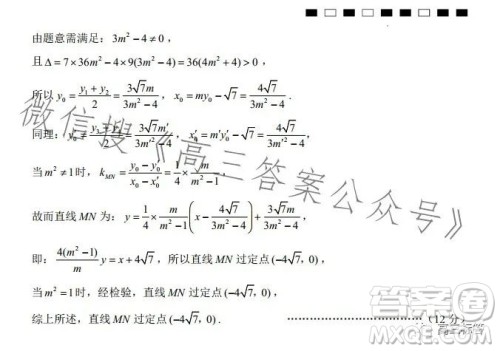 由题意需满足：3m²−4≠0，
且Δ=7×36m²−4×9(3m²−4)=36(4m²+4)>0，
所以 y₀=(y₁+y₂)/2=3√7m/(3m²−4)，x₀=my₀−√7=4√7/(3m²−4).
同理：y₀′=3√7m′/(3m′²−4)，x₀′=m′y′−√7=4√7/(3m′²−4)，
当 m²≠1时，k_MN=(y₀−y₀′)/(x₀−x₀′)=1/4×m/(m²−1)，
故而直线 MN 为：y=1/4×m/(m²−1)(x−4√7/(3m²−4))+3√7m/(3m²−4)，
即：4(m²−1)/m y=x+4√7，所以直线 MN 过定点(−4√7,0)，
当 m²=1时，经检验，直线 MN 过定点(−4√7,0)，
综上所述，直线 MN 过定点(−4√7,0). ……………………（12分）
微信搜《高三答案公众号》
答案圈